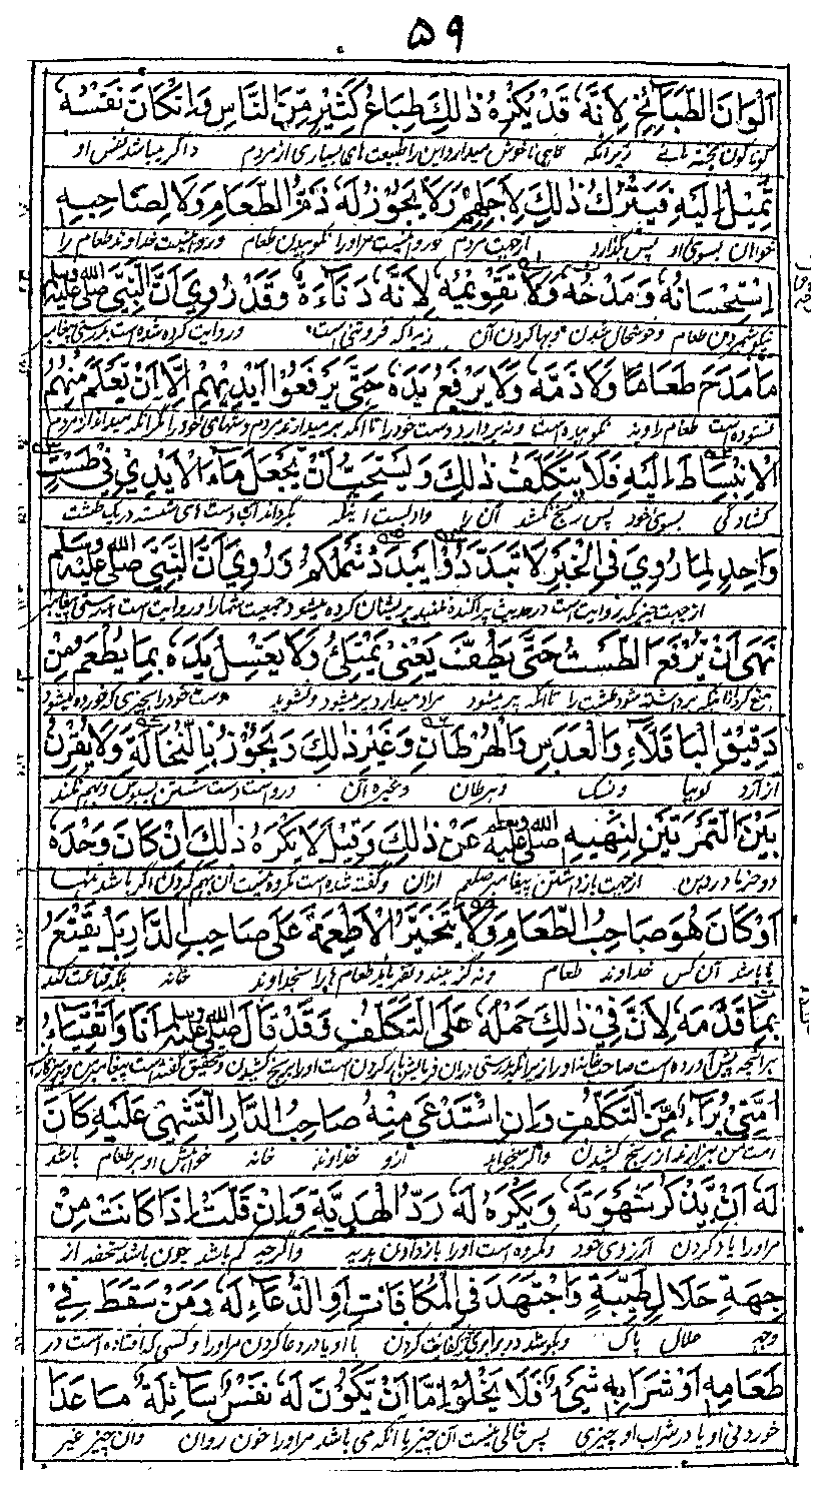 ۵۹
اَلْوَانَ الطَّبَائِخِ لِاَنَّهٗ قَدْ يَكْرَهُ ذٰلِكَ طِبَاعُ كَثِيْرٍ مِّنَ النَّاسِ وَاِنْ كَانَ نَفْسُهٗ
گوناگون پخته هائے زیرانکه گاهی ناخوش میدارد این را طبیعت های بسیاری از مردم و اگر میباشد نفس او
تَمِيْلُ اِلَيْهِ فَيَتْرُكُ ذٰلِكَ لِاَجْلِهِمْ وَلَا يَجُوْزُ لَهٗ ذَمُّ الطَّعَامِ وَلَا لِصَاحِبِهٖ
خواهان بسوی او پس بگذارد از جهت مردم و روا نیست مر او را نکوهیدن طعام و روا نیست خداوند طعام را
اِسْتِحْسَانُهٗ وَمَدْحُهٗ وَلَا تَقْوِيْمُهٗ لِاَنَّهٗ دَنَاءَةٌ وَقَدْ رُوِيَ اَنَّ النَّبِيَّ صَلَّى اللّٰهُ عَلَيْهِ وَسَلَّمَ
نیکو شمردن طعام و خوشحال شدن و بها کردن آن زیرا که فروتنی است و روایت کرده شده است بدرستی پیغامبر
مَا مَدَحَ طَعَامًا وَلَا ذَمَّهٗ وَلَا يَرْفَعُ يَدَهٗ حَتّٰى يَرْفَعُوْا اَيْدِيَهُمْ اِلَّا اَنْ يَّعْلَمَ مِنْهُمُ
نستوده است طعام را و نه نکوهیده است و نه بردارد دست خود را تا آنکه بر میدارند مردم دستهای خود را مگر آنکه میداند از مردم
الْاِنْبِسَاطَ اِلَيْهِ فَلَا يَتَكَلَّفُ ذٰلِكَ وَيَسْتَحِبُّ اَنْ يَّجْعَلَ مَاءَ الْاَيْدِيْ فِيْ طَسْتٍ
کشادگی بسوی خود پس رنج نکشد آن را و اینکه گرداند آب دست های شسته در یک طشت
وَاحِدٍ لِمَا رُوِيَ فِي الْخَبَرِ لَا تَبَدَّدُوْا يُبَدَّدُ شَمْلُكُمْ وَرُوِيَ اَنَّ النَّبِيَّ صَلَّى اللّٰهُ عَلَيْهِ وَسَلَّمَ
از جهت چیزیکه روایت است در حدیث پراکنده نکنید پریشان کرده میشود جمعیت شما را و روایت است بدرستی پیغامبر
نَهٰى اَنْ يُّرْفَعَ الطَّسْتُ حَتّٰى يَطُفَّ يَعْنِيْ يَمْتَلِئُ وَلَا يَغْسِلُ يَدَهٗ بِمَا يُطْعَمُ مِنْ
منع کرد از اینکه برداشته شود طشت را تا آنکه پر میشود مراد میدارد پر میشود و نشوید دست خود را بچیزی که خورده میشود
دَقِيْقِ الْبَاقِلَّاءِ وَالْعَدَسِ وَالْهُرْطَانِ وَغَيْرِ ذٰلِكَ وَيَجُوْزُ بِالنُّخَالَةِ وَلَا يَقْرِنُ
از آرد لوبیا و هرطان و غیره آن و روا است دست شستن بسبوس و بهم نکند
بَيْنَ التَّمْرَتَيْنِ لِنَهْيِهٖ صَلَّى اللّٰهُ عَلَيْهِ وَسَلَّمَ عَنْ ذٰلِكَ وَقِيْلَ لَا يُكْرَهُ ذٰلِكَ اِنْ كَانَ وَحْدَهٗ
دو خرما در دهن از جهت بازداشتن پیغامبر صلعم از آن و گفته شده است مکروه نیست آن بهم کردن اگر باشد تنها
اَوْ كَانَ هُوَ صَاحِبُ الطَّعَامِ وَلَا يَتَخَيَّرُ الْاَطْعِمَةَ عَلٰى صَاحِبِ الدَّارِ بَلْ يَقْنَعُ
یا باشد آن کس خداوند طعام و نه گزیند طعام ها را خداوند خانه بلکه قناعت کند
بِمَا قَدَّمَهٗ لِاَنَّ فِيْ ذٰلِكَ حَمْلَهٗ عَلَى التَّكَلُّفِ وَقَدْ قَالَ صَلَّى اللّٰهُ عَلَيْهِ وَسَلَّمَ اَنَا وَاَتْقِيَاءُ
بر آنچه پیش آورده است صاحب خانه او را زیرا که بدرستی در آن فرمایش بار کردن است او را بر رنج کشیدن و بتحقیق گفته است پیغامبر من و پرهیزگاران
اُمَّتِيْ بُرَاءٌ مِّنَ التَّكَلُّفِ وَاِنِ اسْتَدْعٰى مِنْهُ صَاحِبُ الدَّارِ التَّشَهِّيَ عَلَيْهِ كَانَ
امت من بیزارند از رنج کشیدن و اگر میخواهد از و خداوند خانه خواهش او بر طعام باشد
لَهٗ اَنْ يَّذْكُرَ شَهْوَتَهٗ وَيُكْرَهُ لَهٗ رَدُّ الْهَدِيَّةِ وَاِنْ قَلَّتْ اِذَا كَانَتْ مِنْ
مر او را یاد کردن آرزوی خود و مکروه است او را باز دادن هدیه و اگرچه کم باشد چون باشد تحفه از
جِهَةِ حَلَالٍ طَيِّبَةٍ وَاجْتَهَدَ فِي الْمُكَافَاتِ اَوِ الدُّعَاءِ لَهٗ وَمَنْ سَقَطَ فِيْ
وجه حلال پاک و بکوشد در کردن با او یا در دعا کردن مر او را و کسی که افتاده است در
طَعَامِهٖ اَوْ شَرَابِهٖ شَيْءٌ فَلَا يَخْلُوْ اِمَّا اَنْ يَّكُوْنَ لَهٗ نَفْسٌ سَائِلَةٌ مَا عَدَا
خوردنی او یا در شراب او چیزی پس خالی نیست آن چیز یا آنکه می باشد مر او را خون روان و آن چیز غیر